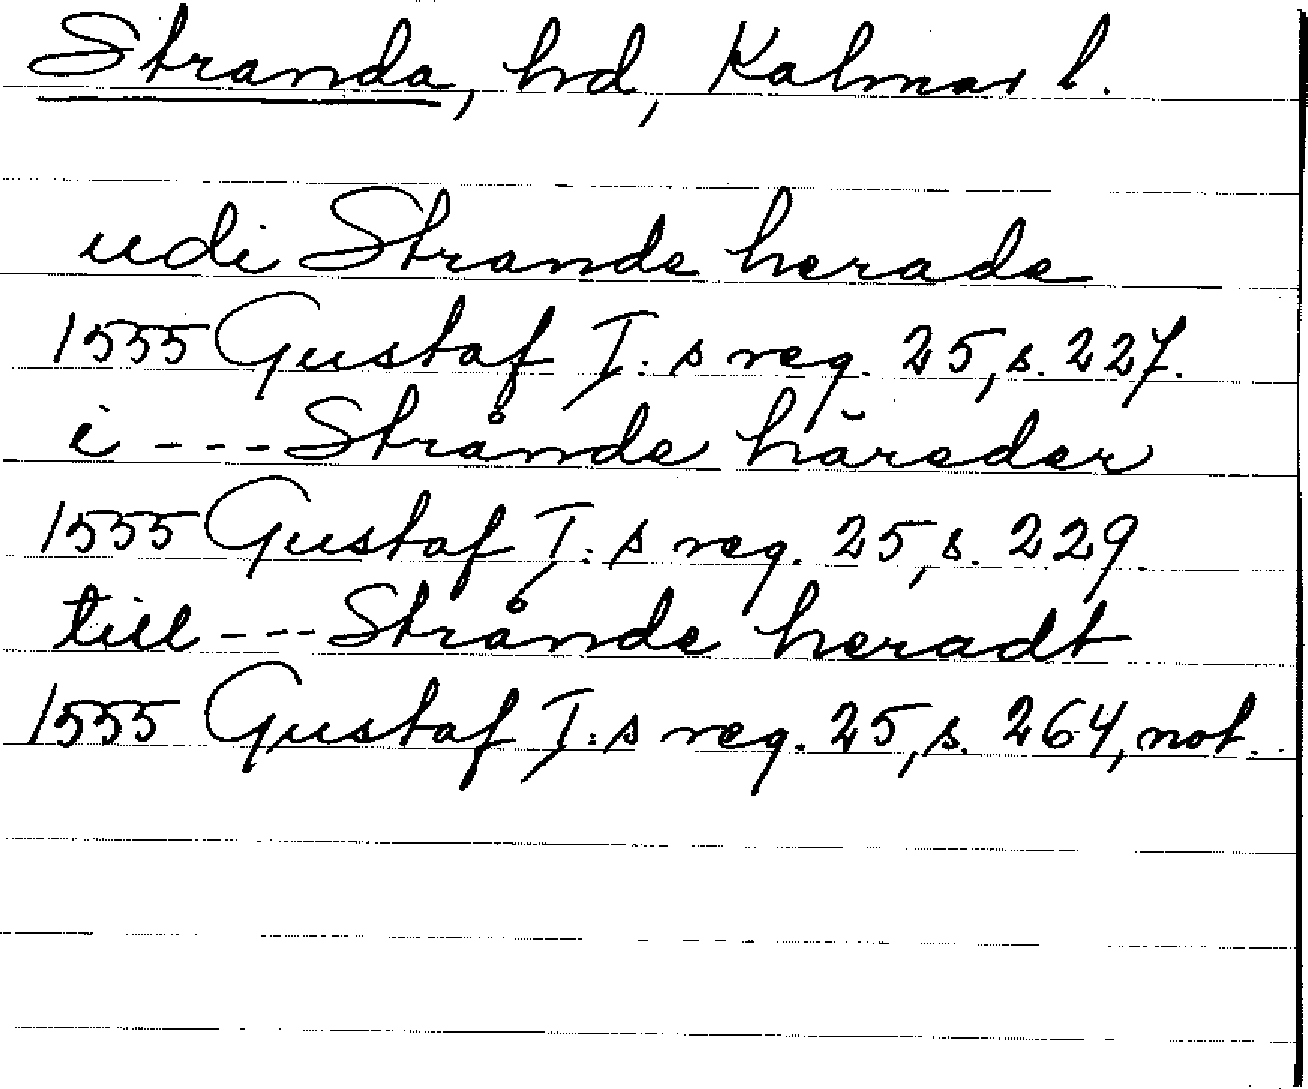 Stranda, hd, Kalmar l.
udi Strande herade
1555 Gustaf I:s reg. 25, s. 227.
i --- Strånde häreder
1555 Gustaf I:s reg. 25, s. 229
till --- Strånde heradt
1555 Gustaf I:s reg. 25, s. 264, not.